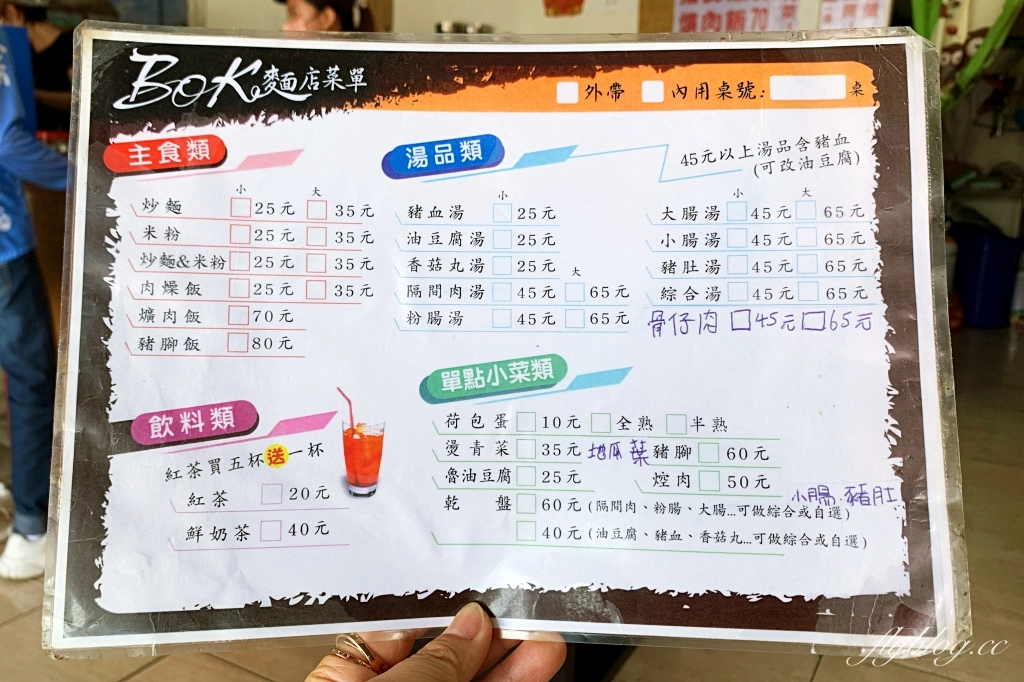 爌肉飯70
BOK麵店菜單
外帶 內用桌號: 桌
主食類
小 大
炒麵 25元 35元
米粉 25元 35元
炒麵&米粉 25元 35元
肉燥飯 25元 35元
爌肉飯 70元
豬腳飯 80元
湯品類
45元以上湯品含豬血
(可改油豆腐)
小
豬血湯 25元
油豆腐湯 25元
香菇丸湯 25元
大
隔間肉湯 45元 65元
粉腸湯 45元 65元
小 大
大腸湯 45元 65元
小腸湯 45元 65元
豬肚湯 45元 65元
綜合湯 45元 65元
骨仔肉 45元 65元
飲料類
紅茶買五杯送一杯
紅茶 20元
鮮奶茶 40元
單點小菜類
荷包蛋 10元 全熟 半熟
燙青菜 35元 地瓜葉 豬腳 60元
魯油豆腐 25元 焢肉 50元
小腸.豬肚
乾 盤 60元 (隔間肉、粉腸、大腸...可做綜合或自選)
40元 (油豆腐、豬血、香菇丸...可做綜合或自選)
flyblog.cc